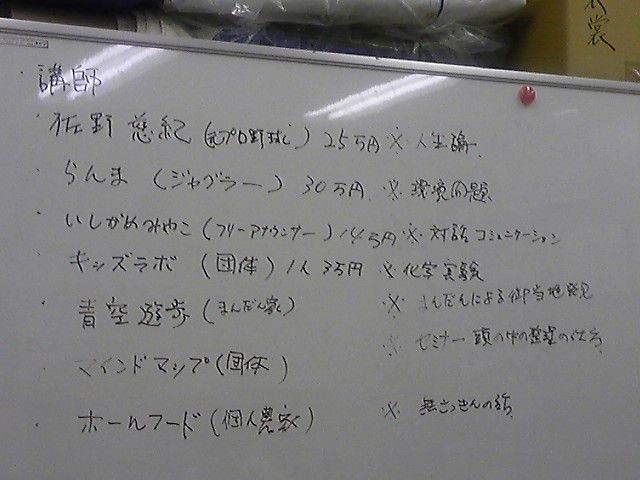 衣裳
・講師
・佐野慈紀(元プロ野球) 25万円 ※人生論
・らんま (ジャグラー) 30万円 ※環境問題
・いしがめみやこ(フリーアナウンサー) 14万円 ※対話コミュニケーション
・キッズラボ (団体) 1人3万円 ※化学実験
・青空遊歩(まんだん家) ※まんだんによる御当地発見
・マインドマップ(団体) ※セミナー頭の中の整理の仕方
・ホールフード(個人農家) ※